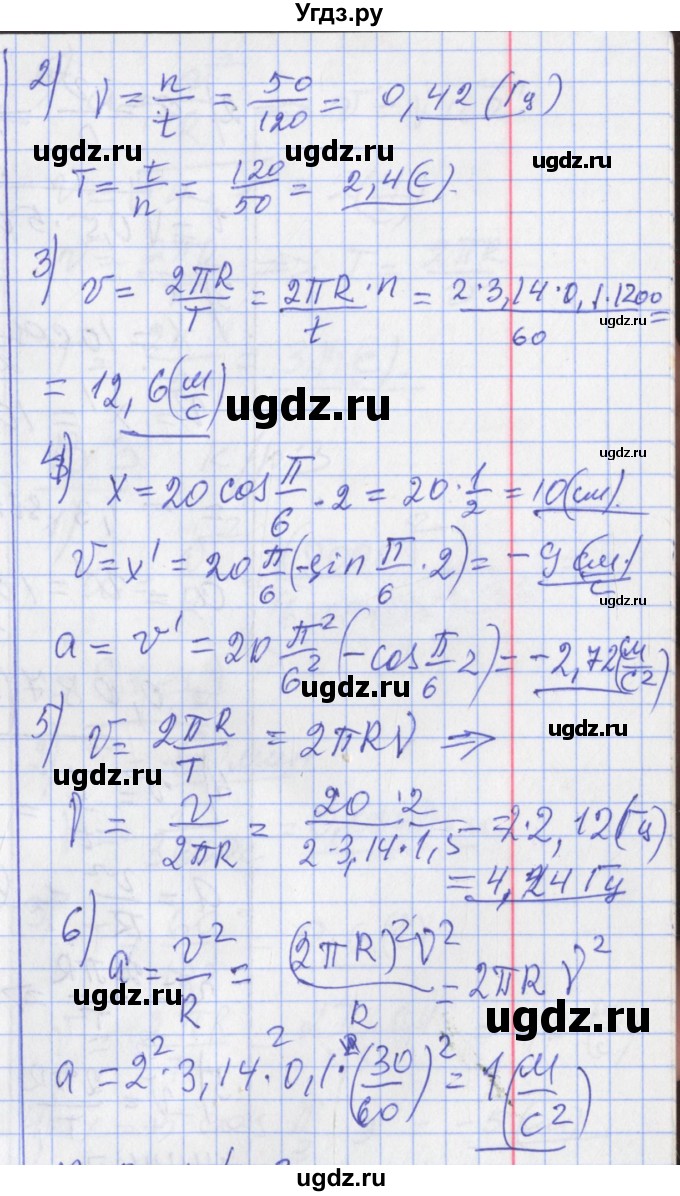 Угдз.ру
2) ν = n/t = 50/120 = 0,42 (Гц)
ugdz.ru ugdz.ru
T = t/n = 120/50 = 2,4 (с).
3) v = 2πR/T = 2πR·n/t = 2·3,14·0,1·1200/60 =
ugdz.ru
= 12,6 (м/с)
ugdz.ru
4) x = 20 cos π/6 · 2 = 20·1/2 = 10 (см).
ugdz.ru
v = x' = 20 π/6 (-sin π/6 · 2) = -9 (см/с)
ugdz.ru
a = v' = 20 π²/6² (-cos π/6 2) = -2,72 (м/с²)
5) v = 2πR/T = 2πRν ⇒
ugdz.ru ugdz.ru
ν = v/2πR = 20·2/2·3,14·1,5 = 2·2,12 (Гц)
= 4,24 Гц
6) a = v²/R = (2πR)²ν²/R = 2πRν²
ugdz.ru ugdz.ru
a = 2²·3,14²·0,1·(30/60)² = 1 (м/с²)
ugdz.ru